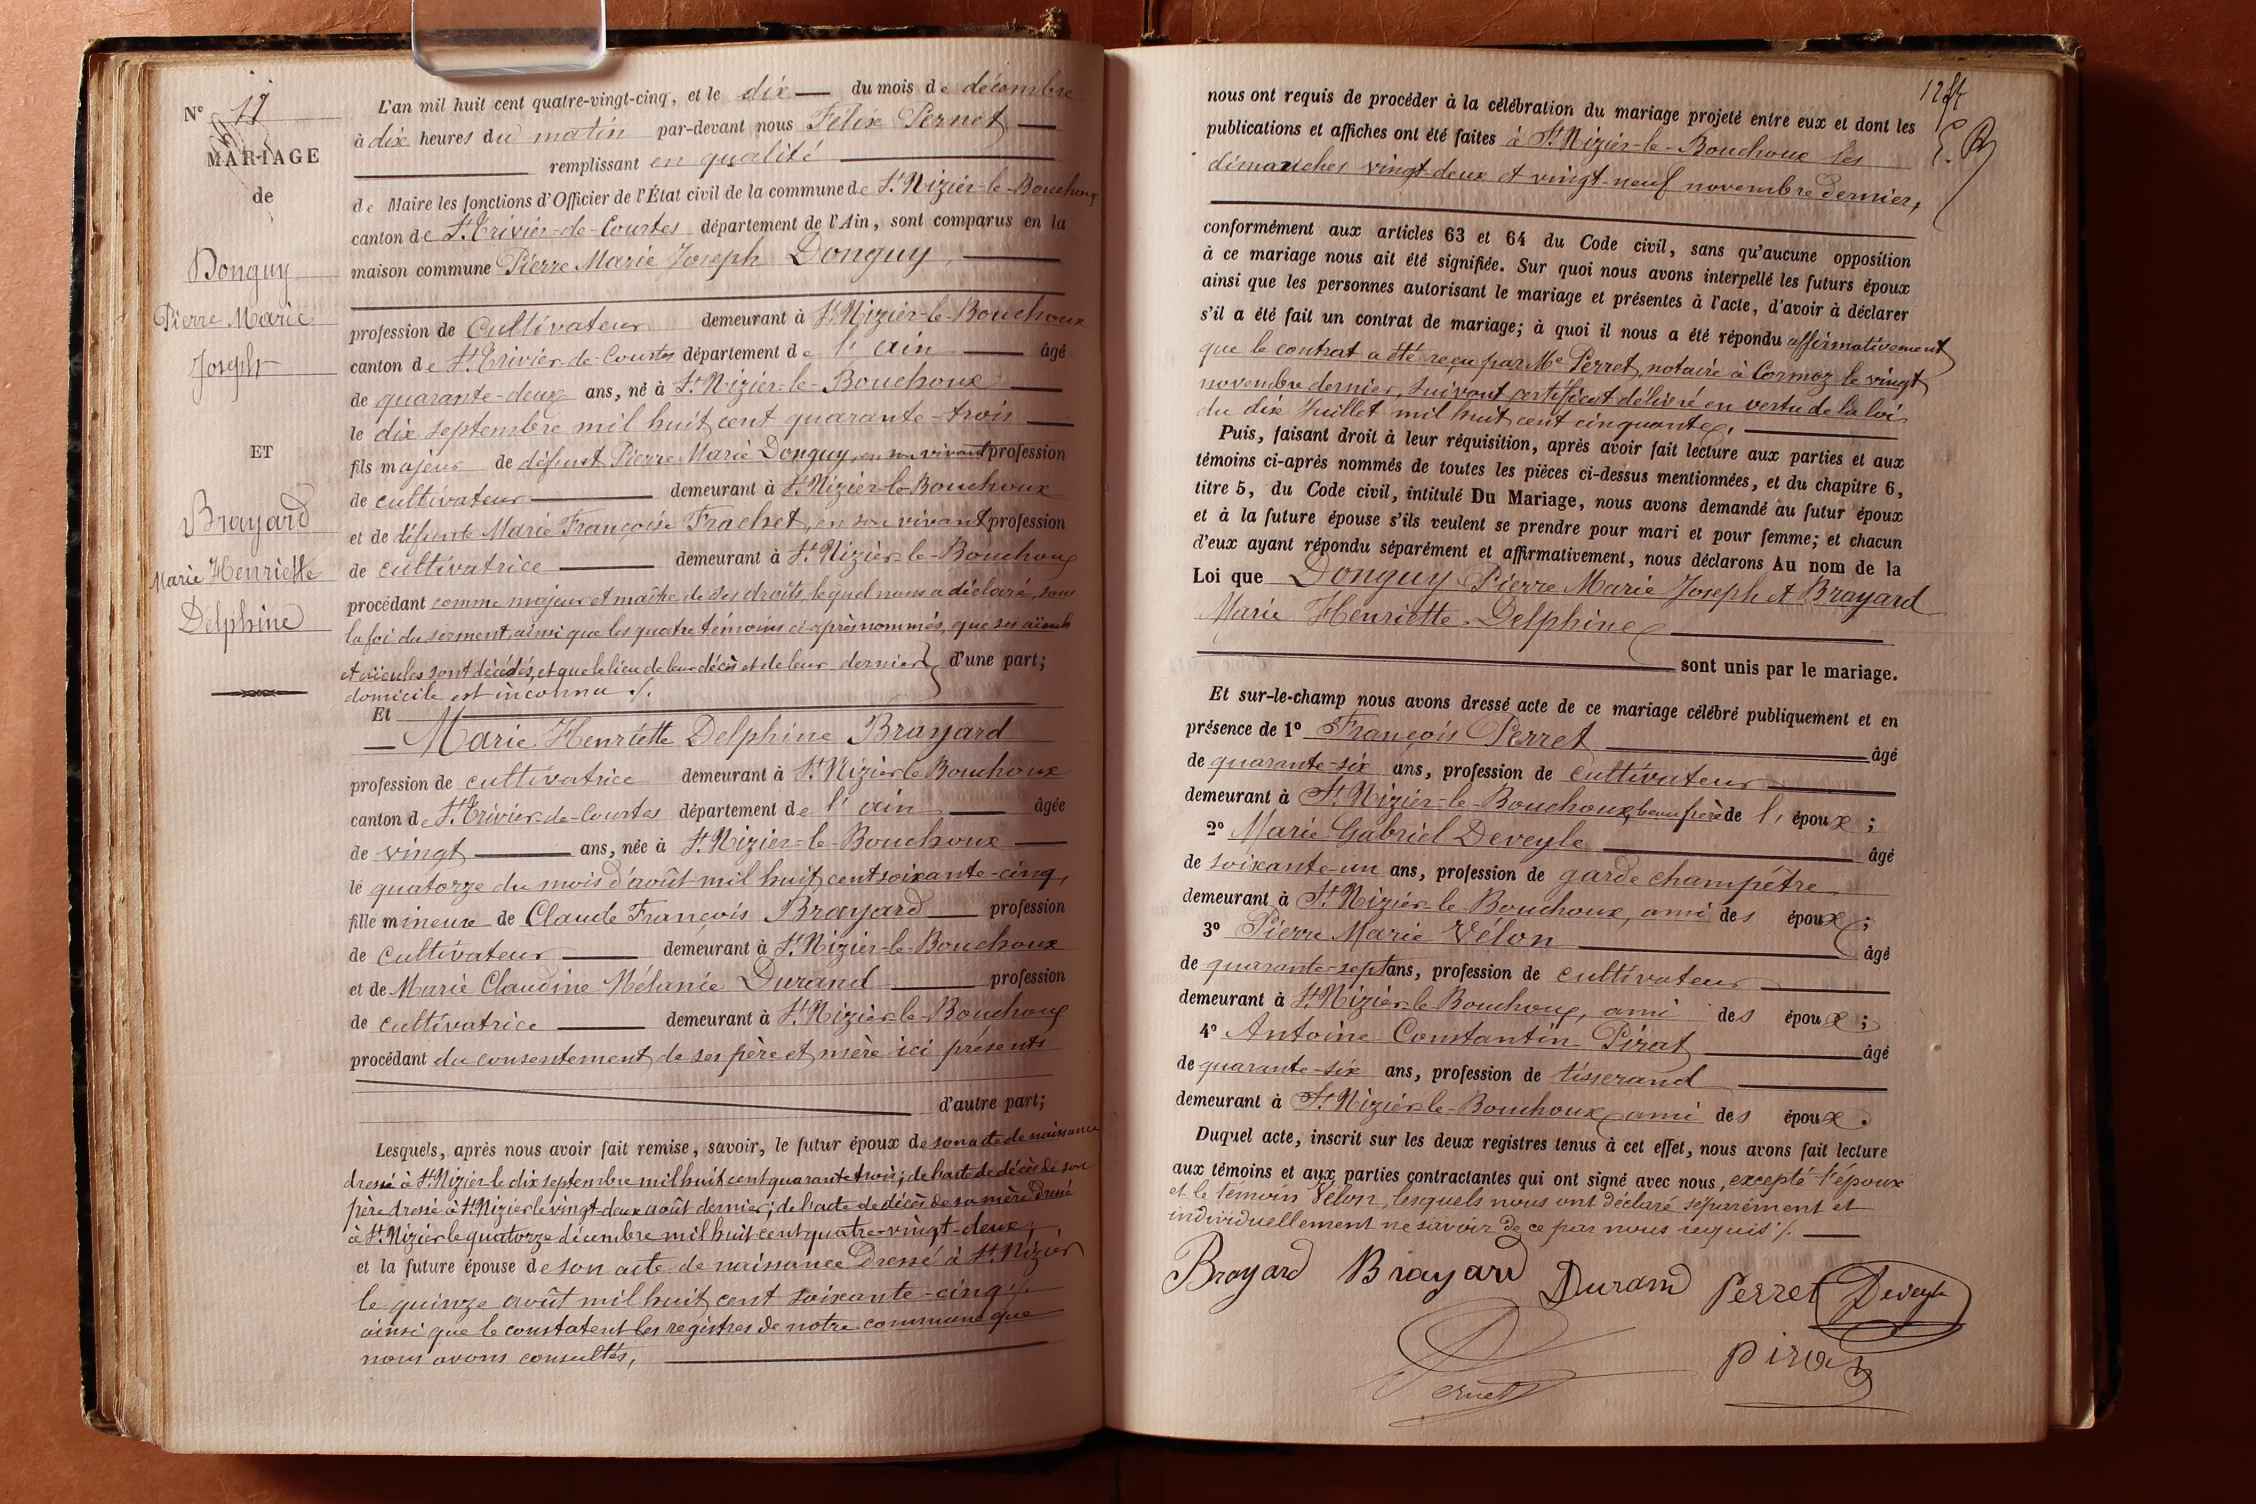 N° 17
MARIAGE
de
Donguy
Pierre Marie
Joseph
ET
Brayard
Marie Henriette
Delphine
L'an mil huit cent quatre-vingt-cinq, et le dix du mois de décembre
à dix heures du matin par-devant nous Félix Pernet
remplissant en qualité
de Maire les fonctions d'Officier de l'État civil de la commune de St Nizier-le-Bouchoux
canton de St Trivier-de-Courtes département de l'Ain, sont comparus en la
maison commune Pierre Marie Joseph Donguy,
profession de cultivateur demeurant à St Nizier-le-Bouchoux
canton de St Trivier-de-Courtes département de l'ain âgé
de quarante-deux ans, né à St Nizier-le-Bouchoux
le dix septembre mil huit cent quarante-trois
fils majeur de défunt Pierre Marie Donguy, en son vivant profession
de cultivateur demeurant à St Nizier-le-Bouchoux
et de défunte Marie Françoise Frachet, en son vivant profession
de cultivatrice demeurant à St Nizier-le-Bouchoux
procédant comme majeur et maître de ses droits, lequel nous a déclaré, sous
la foi du serment, ainsi que les quatre témoins ci-après nommés, que ses aïeuls
et aïeules sont décédés, et que le lieu de leur décès et de leur dernier d'une part;
domicile est inconnu ./.
Et
Marie Henriette Delphine Brayard
profession de cultivatrice demeurant à St Nizier le Bouchoux
canton de St Trivier-de-Courtes département de l'ain âgée
de vingt ans, née à St Nizier-le-Bouchoux
le quatorze du mois d'août mil huit cent soixante-cinq,
fille mineure de Claude François Brayard profession
de cultivateur demeurant à St Nizier-le-Bouchoux
et de Marie Claudine Mélanie Durand profession
de cultivatrice demeurant à St Nizier-le-Bouchoux
procédant du consentement de ses père et mère ici présents
d'autre part;
Lesquels, après nous avoir fait remise, savoir, le futur époux de son acte de naissance
dressé à St Nizier le dix septembre mil huit cent quarante trois; de l'acte de décès de son
père dressé à St Nizier le vingt-deux août dernier; de l'acte de décès de sa mère dressé
à St Nizier le quatorze décembre mil huit cent quatre-vingt-deux;
et la future épouse de son acte de naissance dressé à St Nizier
le quinze août mil huit cent soixante-cinq ./.
ainsi que le constatent les registres de notre commune que
nous avons consultés,
nous ont requis de procéder à la célébration du mariage projeté entre eux et dont les
publications et affiches ont été faites à St Nizier-le-Bouchoux les
dimanches vingt-deux et vingt-neuf novembre dernier,
conformément aux articles 63 et 64 du Code civil, sans qu'aucune opposition
à ce mariage nous ait été signifiée. Sur quoi nous avons interpellé les futurs époux
ainsi que les personnes autorisant le mariage et présentes à l'acte, d'avoir à déclarer
s'il a été fait un contrat de mariage; à quoi il nous a été répondu affirmativement
que le contrat a été reçu par Me Perret, notaire à Cormoz le vingt
novembre dernier, suivant certificat délivré en vertu de la loi
du dix Juillet mil huit cent cinquante,
Puis, faisant droit à leur réquisition, après avoir fait lecture aux parties et aux
témoins ci-après nommés de toutes les pièces ci-dessus mentionnées, et du chapitre 6,
titre 5, du Code civil, intitulé Du Mariage, nous avons demandé au futur époux
et à la future épouse s'ils veulent se prendre pour mari et pour femme; et chacun
d'eux ayant répondu séparément et affirmativement, nous déclarons Au nom de la
Loi que Donguy Pierre Marie Joseph et Brayard
Marie Henriette Delphine
sont unis par le mariage.
Et sur-le-champ nous avons dressé acte de ce mariage célébré publiquement et en
présence de 1° François Perret âgé
de quarante-six ans, profession de cultivateur
demeurant à St Nizier-le-Bouchoux, beau frère de l'époux;
2° Marie Gabriel Deveyle âgé
de soixante-un ans, profession de garde champêtre
demeurant à St Nizier-le Bouchoux, ami des époux;
3° Pierre Marie Vélon âgé
de quarante-sept ans, profession de cultivateur
demeurant à St Nizier-le Bouchoux, ami des époux;
4° Antoine Constantin Pirat âgé
de quarante-six ans, profession de tisserand
demeurant à St Nizier-le-Bouchoux ami des époux.
Duquel acte, inscrit sur les deux registres tenus à cet effet, nous avons fait lecture
aux témoins et aux parties contractantes qui ont signé avec nous, excepté l'époux
et le témoin Vélon, lesquels nous ont déclaré séparément et
individuellement ne savoir de ce par nous requis ./.
Brayard Brayard Durand Perret Deveyle
Pernet Pirat